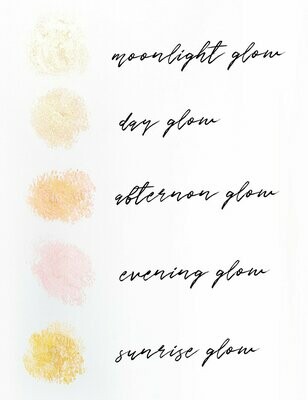 moonlight glow
day glow
afternon glow
evening glow
sunrise glow